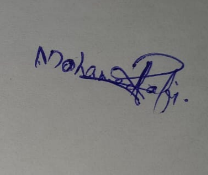 Mohamed Rafi.